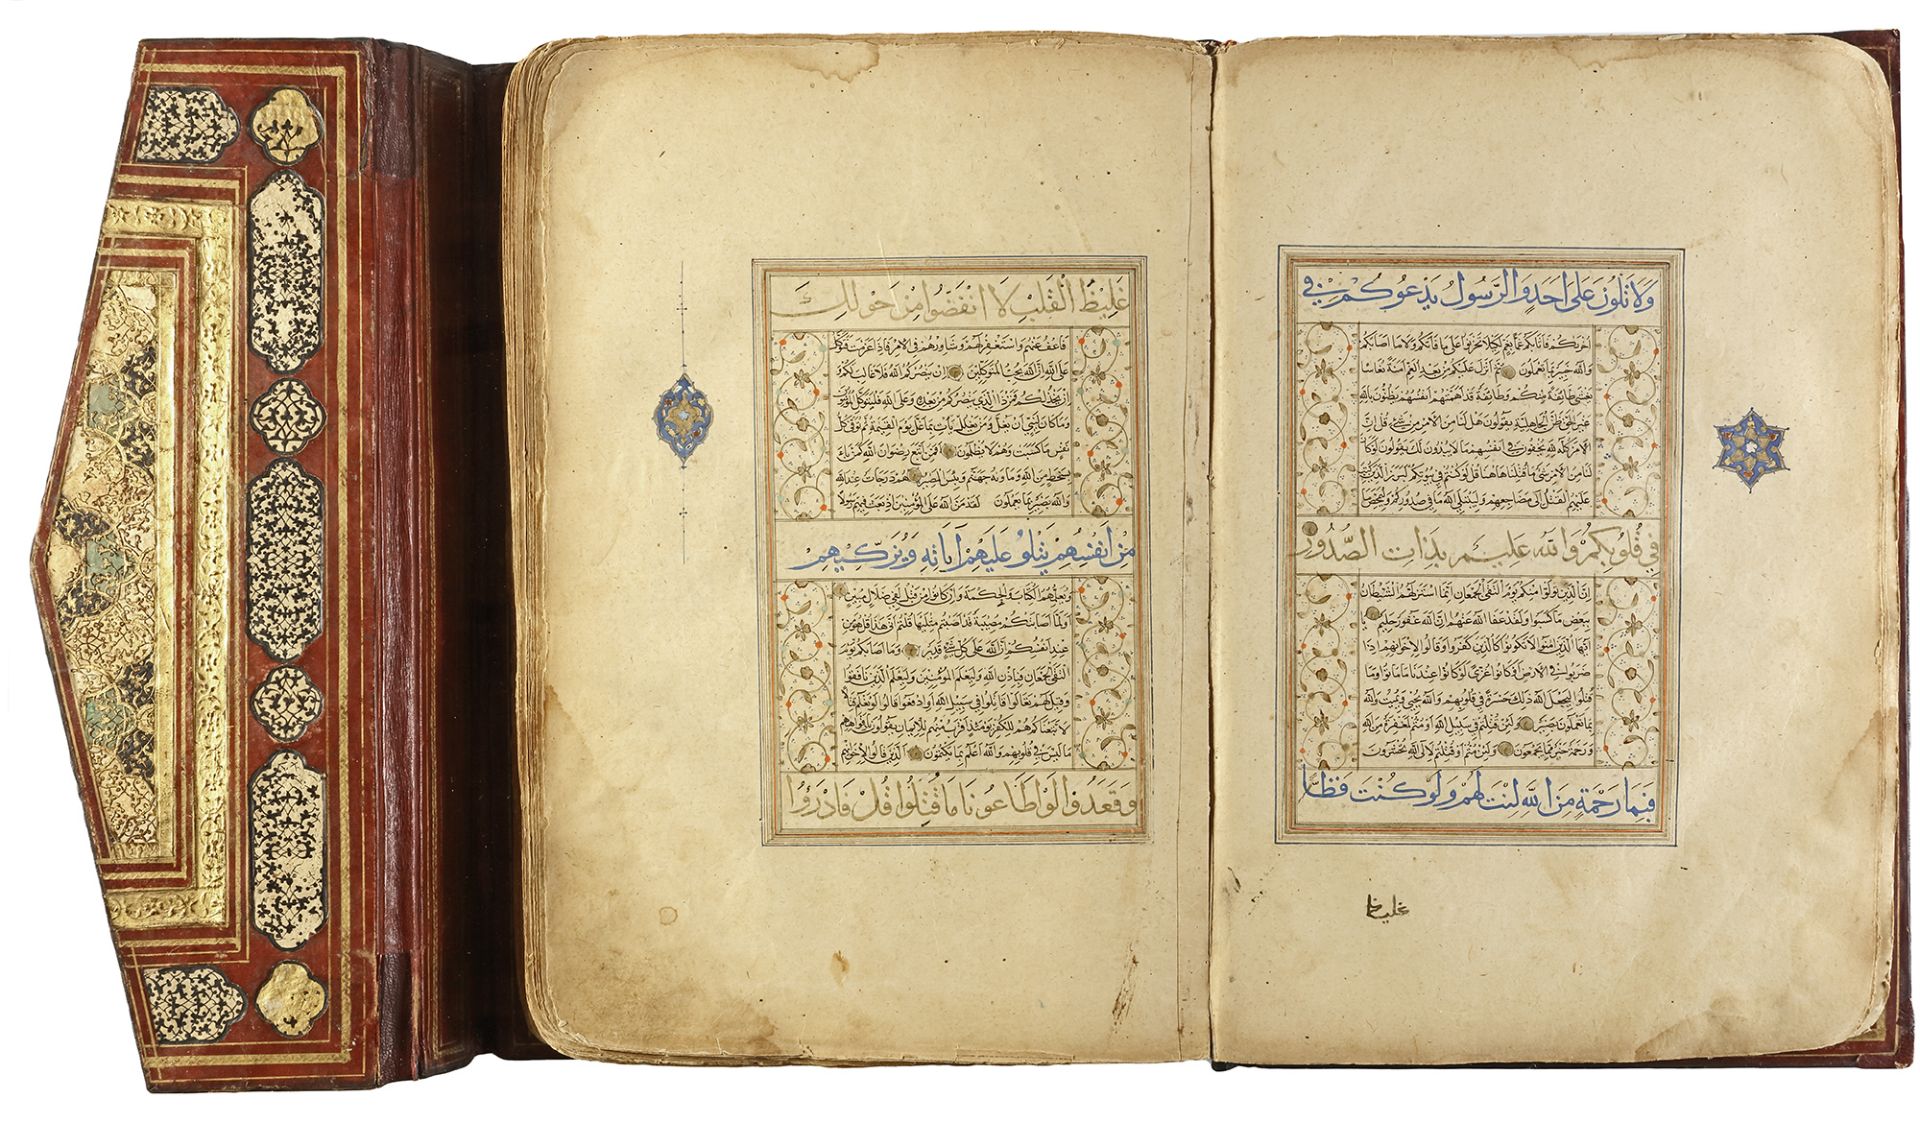 وَلَا تَلْوُونَ عَلَى أَحَدٍ وَالرَّسُولُ يَدْعُوكُمْ فِي
اخريكم فاثابكم غما بغم لكيلا تحزنوا على ما فاتكم ولا ما اصابكم
والله خبير بما تعملون ثم انزل عليكم من بعد الغم امنة نعاسا
يغشى طائفة منكم وطائفة قد اهمتهم انفسهم يظنون بالله
غير الحق ظن الجاهلية يقولون هل لنا من الامر من شيء قل ان
الامر كله لله يخفون في انفسهم ما لا يبدون لك يقولون لو كان
لنا من الامر شيء ما قتلنا هاهنا قل لو كنتم في بيوتكم لبرز الذين كتب
عليهم القتل الى مضاجعهم وليبتلي الله ما في صدوركم وليمحص ما
في قُلُوبِكُمْ وَاللهُ عَلِيمٌ بِذَاتِ الصُّدُورِ
ان الذين تولوا منكم يوم التقى الجمعان انما استزلهم الشيطان
ببعض ما كسبوا ولقد عفا الله عنهم ان الله غفور حليم يا
ايها الذين امنوا لا تكونوا كالذين كفروا وقالوا لاخوانهم اذا
ضربوا في الارض او كانوا غزى لو كانوا عندنا ما ماتوا وما
قتلوا ليجعل الله ذلك حسرة في قلوبهم والله يحيي ويميت والله
بما تعملون بصير ولئن قتلتم في سبيل الله او متم لمغفرة من الله
ورحمة خير مما يجمعون ولئن متم او قتلتم لالى الله تحشرون
فَبِمَا رَحْمَةٍ مِنَ اللهِ لِنْتَ لَهُمْ وَلَوْ كُنْتَ فَظًّا
غليظ
غَلِيظَ الْقَلْبِ لَا انْفَضُّوا مِنْ حَوْلِكَ
فاعف عنهم واستغفر لهم وشاورهم في الامر فاذا عزمت فتوكل
على الله ان الله يحب المتوكلين ان ينصركم الله فلا غالب لكم و
ان يخذلكم فمن ذا الذي ينصركم من بعده وعلى الله فليتوكل المؤمنون
وما كان لنبي ان يغل ومن يغلل يات بما غل يوم القيمة ثم توفى كل
نفس ما كسبت وهم لا يظلمون افمن اتبع رضوان الله كمن باء
بسخط من الله وماويه جهنم وبئس المصير هم درجات عند الله
والله بصير بما يعملون لقد من الله على المؤمنين اذ بعث فيهم رسولا
مِنْ أَنْفُسِهِمْ يَتْلُو عَلَيْهِمْ آيَاتِهِ وَيُزَكِّيهِمْ
ويعلمهم الكتاب والحكمة وان كانوا من قبل لفي ضلال مبين
اولما اصابتكم مصيبة قد اصبتم مثليها قلتم انى هذا قل هو من
عند انفسكم ان الله على كل شيء قدير وما اصابكم يوم
التقى الجمعان فباذن الله وليعلم المؤمنين وليعلم الذين نافقوا
وقيل لهم تعالوا قاتلوا في سبيل الله او ادفعوا قالوا لو نعلم قتالا
لاتبعناكم هم للكفر يومئذ اقرب منهم للايمان يقولون بافواههم
ما ليس في قلوبهم والله اعلم بما يكتمون الذين قالوا لاخوانهم
وَقَعَدُوا لَوْ أَطَاعُونَا مَا قُتِلُوا قُلْ فَادْرَؤُا